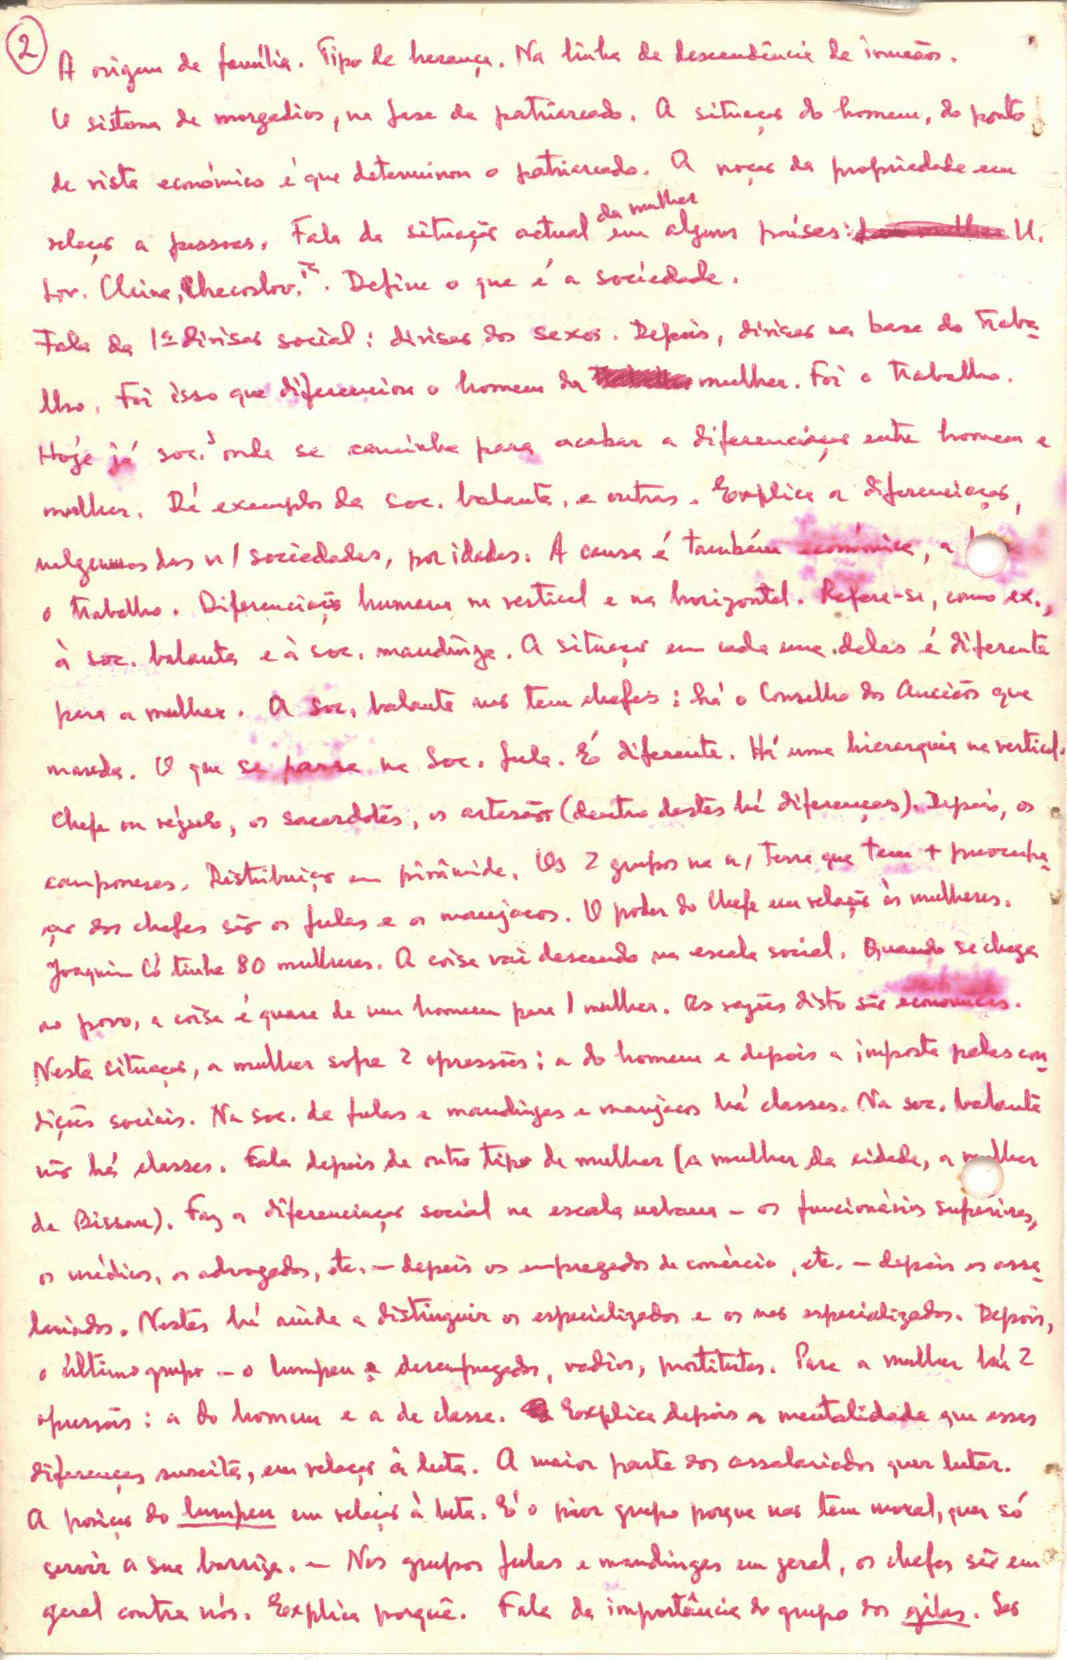 2
A origem da família. Tipo de herança. Na linha de descendência de irmãos.
O sistema de morgadios, na fase de patriarcado. A situação do homem, do ponto
de vista económico é que determinou o patriarcado. A noção da propriedade em
relação a pessoas. Fala da situação actual da mulher em alguns países: U.
Sov. China, Checoslov. Define o que é a sociedade.
Fala da 1ª divisão social: divisão dos sexos. Depois, divisão na base do traba-
lho. Foi isso que diferenciou o homem da mulher. Foi o trabalho.
Hoje já soc.s onde se caminha para acabar a diferenciação entre homem e
mulher. Dá exemplos da soc. balanta, e outras. Explica a diferenciação,
nalgumas das n/ sociedades, por idades. A causa é também económica, a
o trabalho. Diferenciação humana na vertical e na horizontal. Refere-se, como ex.,
à soc. balanta e à soc. mandinga. A situação em cada uma delas é diferente
para a mulher. A soc. balanta não tem chefes: há o Conselho dos Anciãos que
manda. O que se passa na Soc. fula. É diferente. Há uma hierarquia na vertical.
Chefe ou régulo, os sacerdotes, os artesãos (dentro destes há diferenças). Depois, os
camponeses. Distribuição em pirâmide. Os 2 grupos na n/ terra que tem + preocupa-
ção dos chefes são os fulas e os manjacos. O poder do Chefe em relação às mulheres.
Joaquim Có tinha 80 mulheres. A coisa vai descendo na escala social. Quando se chega
ao povo, a coisa é quase de um homem para 1 mulher. As razões disto são económicas.
Nesta situação, a mulher sofre 2 opressões: a do homem e depois a imposta pelas con-
dições sociais. Na soc. de fulas e mandingas e manjacos há classes. Na soc. balanta
não há classes. Fala depois de outro tipo de mulher (a mulher da cidade, a mulher
de Bissau). Faz a diferenciação social na escala urbana – os funcionários superiores,
os médicos, os advogados, etc. – depois os empregados de comércio, etc. – depois os assa-
lariados. Nestes há ainda a distinguir os especializados e os não especializados. Depois,
o último grupo – o lumpen e desempregados, vadios, prostitutas. Para a mulher há 2
opressões: a do homem e a de classe. Explica depois a mentalidade que essas
diferenças suscita, em relação à luta. A maior parte dos assalariados quer lutar.
A posição do lumpen em relação à luta. É o pior grupo porque não tem moral, quer só
servir a sua barriga. – Nos grupos fulas e mandingas em geral, os chefes são em
geral contra nós. Explica porquê. Fala da importância do grupo dos gilas. São